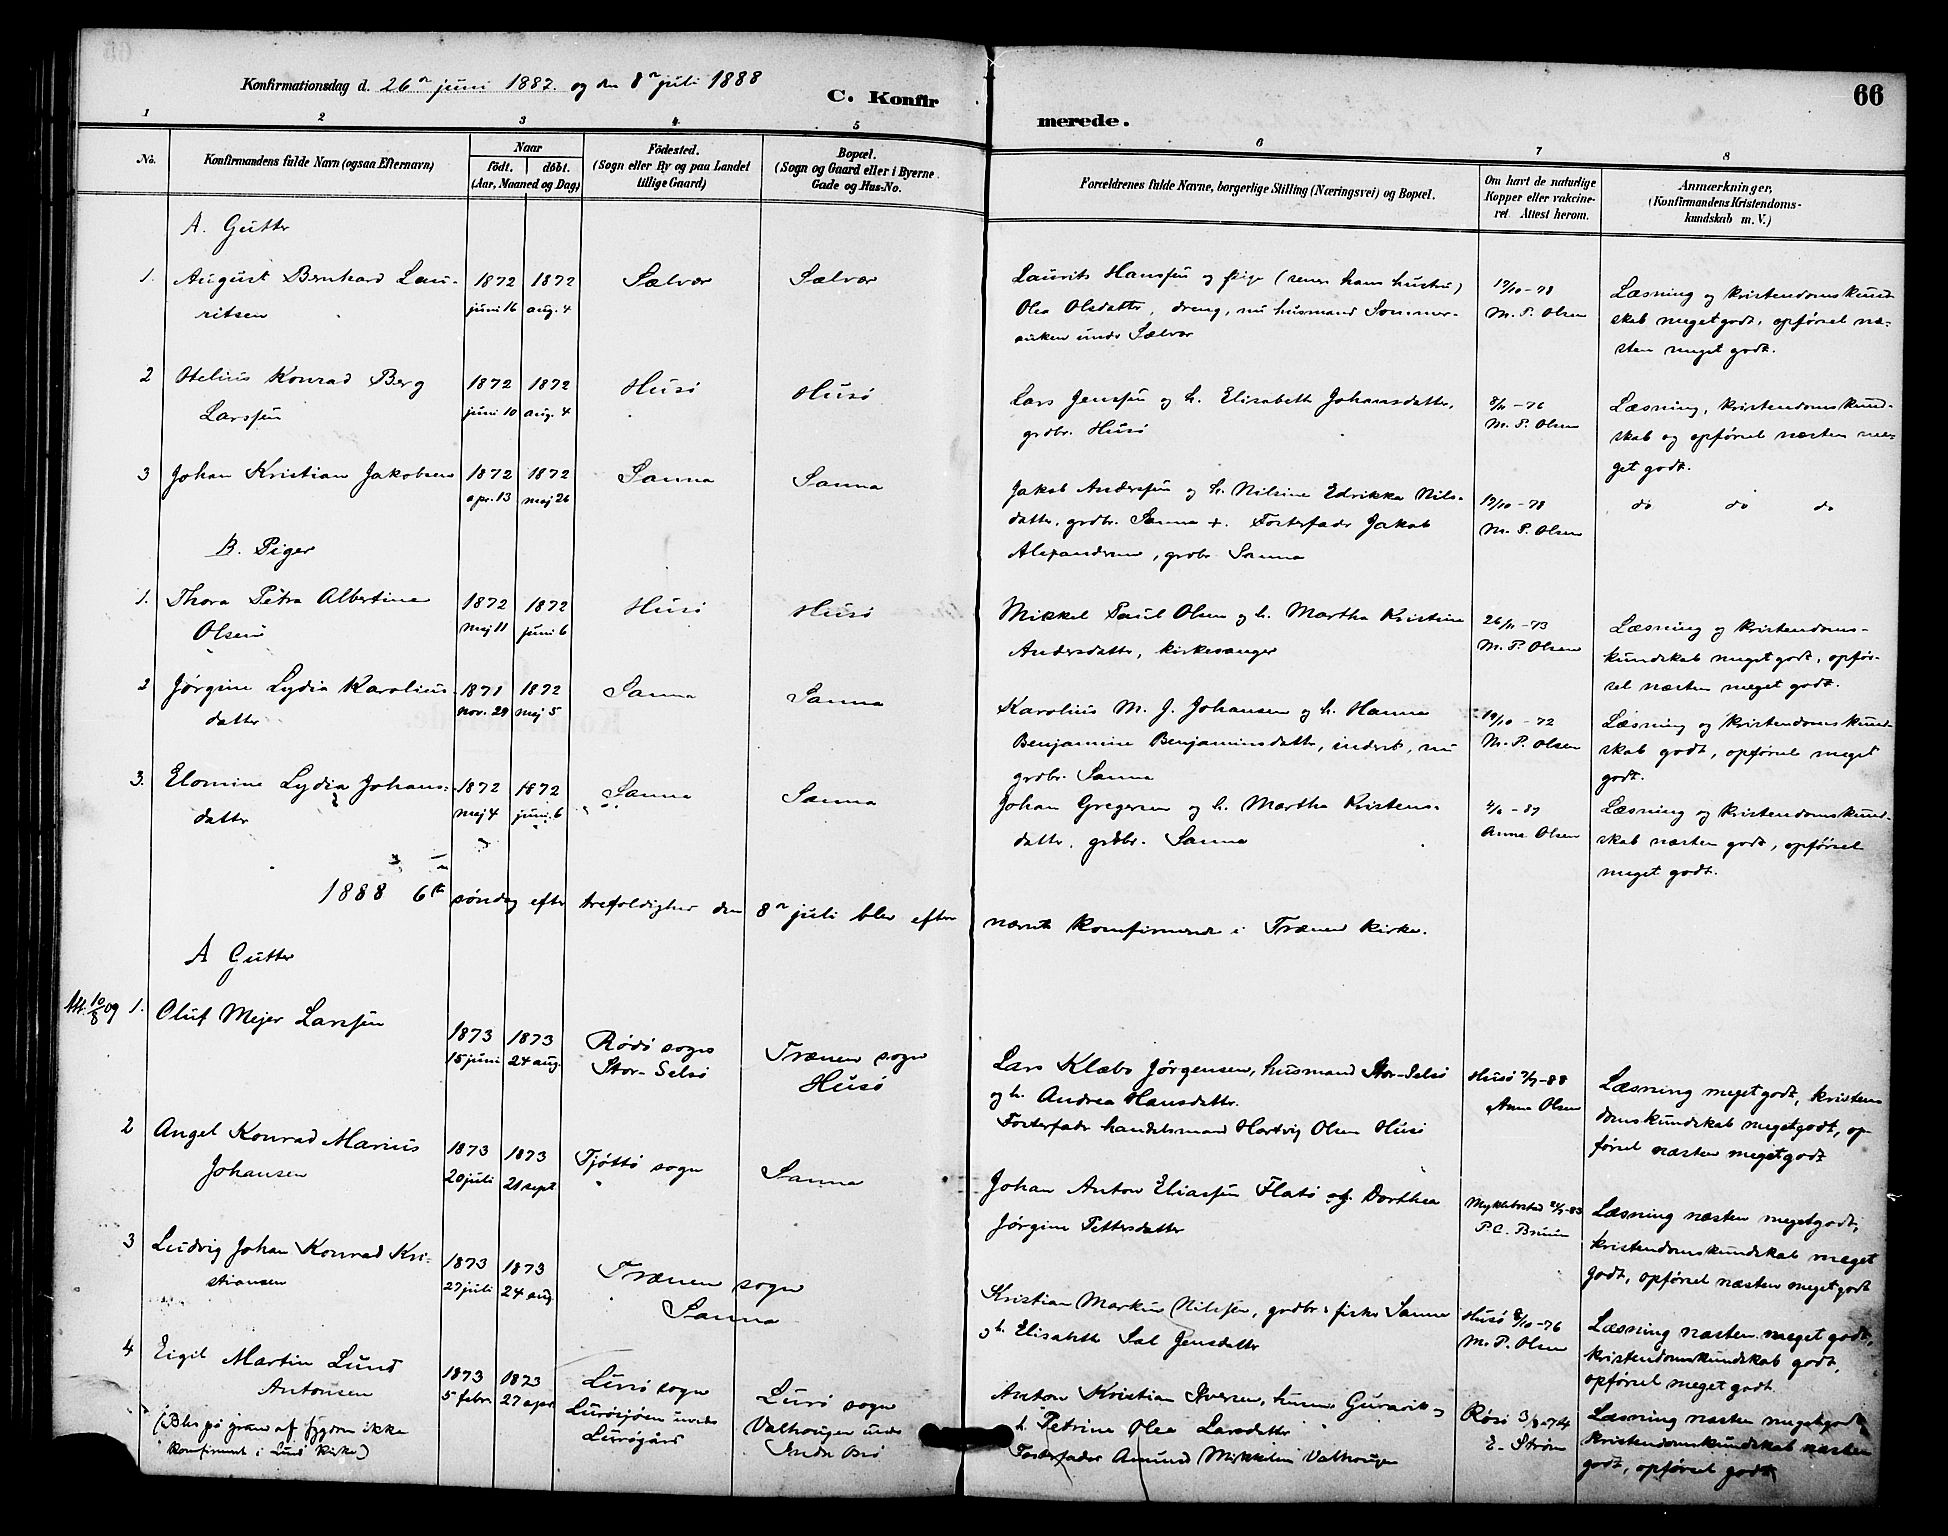 Konfirmationsdag d. 26de juni 1887. og den 8de juli 1888
C. Konfir
merede.
66
1 2 3 4 5 6 7 8
No.
Konfirmandens fulde Navn (ogsaa Efternavn)
Naar
født. døbt.
(Aar, Maaned og Dag)
Födested.
(Sogn eller By og paa Landet
tillige Gaard)
Bopæl.
(Sogn og Gaard eller i Byerne
Gade og Hus-No.
Forældrenes fulde Navne, borgerlige Stilling (Næringsvei) og Bopæl.
Om havt de naturlige
Kopper eller vakcine-
ret. Attest herom.
Anmærkninger,
(Konfirmandens Kristendoms-
kundskab m. V.)
A. Gutter
1. August Bernhard Lau-
ritsen
1872 1872
juni 16 aug. 4
Sælvær
Sælvær
Laurits Hanssen og pige (senere hans hustru)
Olea Olsdatter, dreng, nu husmand Sommer-
under Sælvær
17/10-78
M. P. Olsen
Læsning og kristendomskund
skab meget godt, opførsel næ-
sten meget godt.
2 Helius Konrad Berg
Larssen
1872 1872
juni 10 aug. 4
Husö
Husö
Lars Jenssen og h. Elisabeth Johansdatter,
grdbr. Husö
-76
M. P. Olsen
Læsning, kristendomskund-
skab og opførsel næsten me-
get godt.
3 Johan Kristian Jakobsen
1872 1872
apr. 13 maj 26
Sanna
Sanna
Jakob Anderssen og h. Nilsine Edrikka Nils-
datter, grdbr. Sanna +. Fosterfader Jakob
Alexandersen, grdbr. Sanna
17/10-78
M. P. Olsen
do do do
B. Piger
1. Thora Petra Albertine
Olsen
1872 1872
maj 11 juni 6
Husö
Husö
Mikkel Paul Olsen og h. Martha Kristine
Andersdatter, kirkesanger
26/11-73
M. P. Olsen
Læsning og kristendoms-
kundskab meget godt, opför-
sel næsten meget godt.
2 Jørgine Lydia Karolius-
datter
1871 1872
nov. 29 maj 5
Sanna
Sanna
Karolius M. J. Johansen og h. Hanna
Benjamine Benjaminsdatter, inderst, nu
grdbr. Sanna
19/10-72
M. P. Olsen
Læsning og kristendomskund
skab godt, opførsel meget
godt.
3. Elomine Lydia Johans-
datter
1872 1872
maj 4 juni 6
Sanna
Sanna
Johan Gregersen og h. Martha Kristens-
datter, grdbr. Sanna
-87
Anna Olsen
Læsning og kristendomskund-
skab næsten godt, opførsel
meget godt.
1888 6te søndag efter trefoldighed den 8de juli blev efter
nævnte konfirmerede i Trænen kirke.
A Gutter
10/8 09 1. Oluf Mejer Larssen
1873 1873
15 juni 24 aug.
Rödö sogn
Stor-Selsö
Trænen sogn
Husö
Lars Klæbo Jørgensen, husmand Stor-Selsö
og h. Andrea Hansdatter.
Fosterfader handelsmand Hartvig Olsen Husö
Husö -88
Anna Olsen
Læsning meget godt, kristen
domskundskab meget godt, op
førsel næsten meget godt
2 Angel Konrad Marius
Johansen
1873 1873
20 juli 21 sept
Tjöttö sogn
Sanna
Johan Anton Eliassen Flatö og Dorthea
Jørgine Pettersdatter
Myklebostad -83
P. C. Bruun
Læsning næsten meget godt,
kristendomskundskab meget
godt, opførsel næsten meget godt
3 Ludvig Johan Konrad Kri-
stiansen
1873 1873
27 juli 24 aug
Trænen sogn
Sanna
Kristian Markus Nilssen, grdbr. fisker Sanna
og h. Elisabeth Sal Jensdatter
Husö 8/10-76
M. P. Olsen
Læsning næsten meget godt,
kristendomskundskab godt,
opførsel meget godt.
4 Eigil Martin Lund
Antonsen
1873 1873
5 febr 27 apr
Lurö sogn
Lurösjøen under
Lurögård
Lurö sogn
Valhougen under
Indre Brö
Anton Kristian Iversen,
h. Petrine Olea Larsdatter
Fosterfader Amund Mikkelsen Valhougen
Rösö 3/8-74
E. Strøm
Læsning næsten meget godt
kristendomskundskab næsten
godt, opførsel godt
(Blev på grund af sygdom ikke
konfirmeret i Lurö kirke)